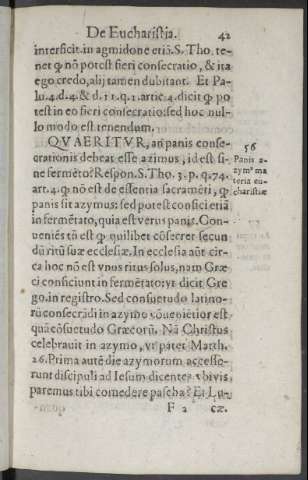 De Eucharistia. 42
interficit.in agmidone etiã.S. Tho. te-
net ꝙ nõ potest fieri consecratio, & ita
ego credo, alij tamen dubitant. Et Pa-
lu.4.d.4.& d.11.q.1.artic 4.dicit ꝙ po
test in eo fieri consecratio: sed hoc nul-
lo modo est tenendum.
QVAERITVR, an panis conse-
crationis debeat esse azimus, idest si-
ne fermẽto? Respon. S. Tho. 3. p. q.74.
art.4. ꝙ nõ est de essentia sacramẽti, ꝙ
panis sit azymus: sed potest confici etiã
in fermẽtato, quia est verus panis. Con-
ueniẽs tñ est ꝙ quilibet cõsecret secun
dũ ritũ suæ ecclesiæ. In ecclesia aũt cir-
ca hoc nõ est vnus ritus solus, nam Græ
ci conficiunt in fermẽtato: vt dicit Gre
go.in registro. Sed consuetudo latino-
rũ consecrãdi in azymo cõuenietior est
quã cõsuetudo Græcorũ. Nã Christus
celebrauit in azymo, vt patet Matth.
26. Prima autẽ die azymorum accesse-
runt discipuli ad Iesum dicentes vbi vis
paremus tibi comedere pascha? Et Lu-
F 2 cæ.
56
Panis a-
zymꝰ ma
teria eu-
charistiæ